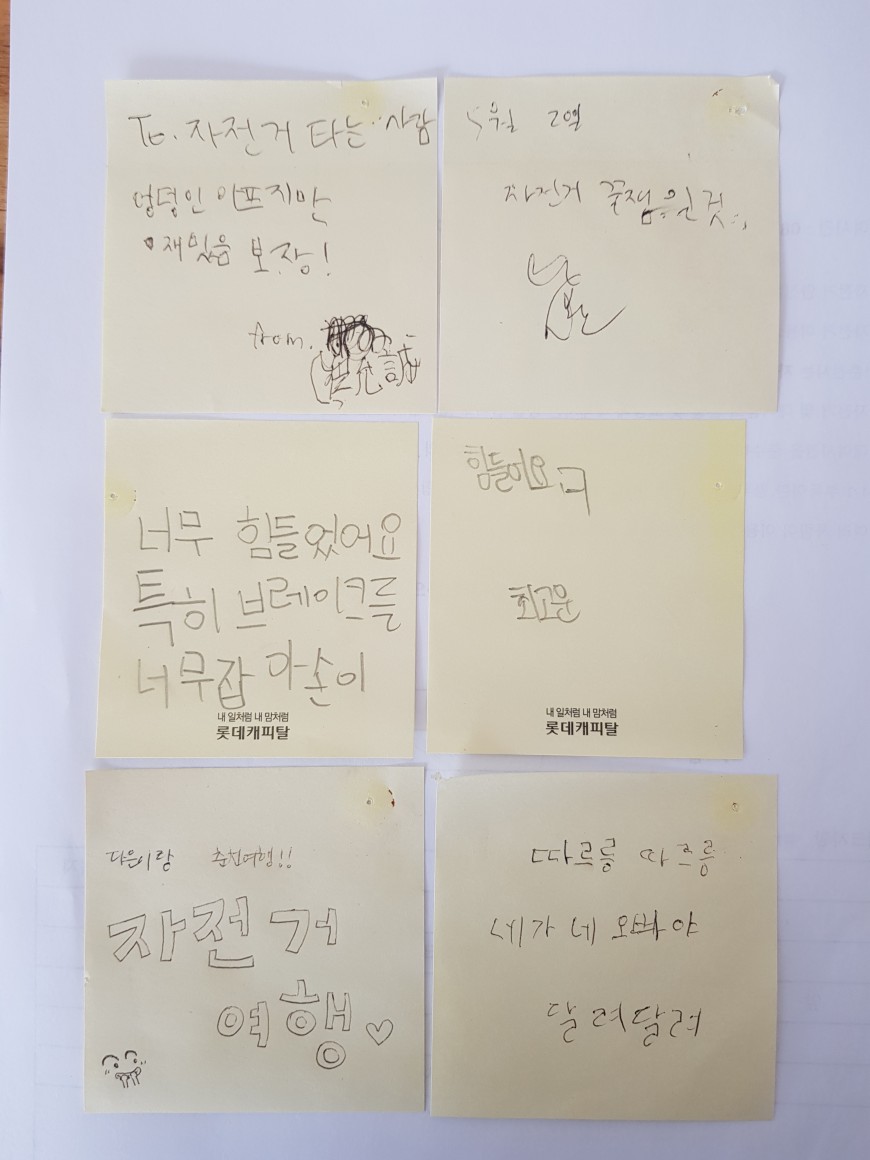 To. 자전거 타는 사람
엉덩인 아프지만
재밌음 보장!
from.
允誠
5월 2일
자전거 꿀잼
너무 힘들었어요
특히 브레이크를
너무잡 아손이
내 일처럼 내 맘처럼
롯데캐피탈
힘들어요
최고운
내 일처럼 내 맘처럼
롯데캐피탈
다은이랑 춘천여행!!
자전거
여행♡
따르릉 따르릉
네 오빠야
달려달려